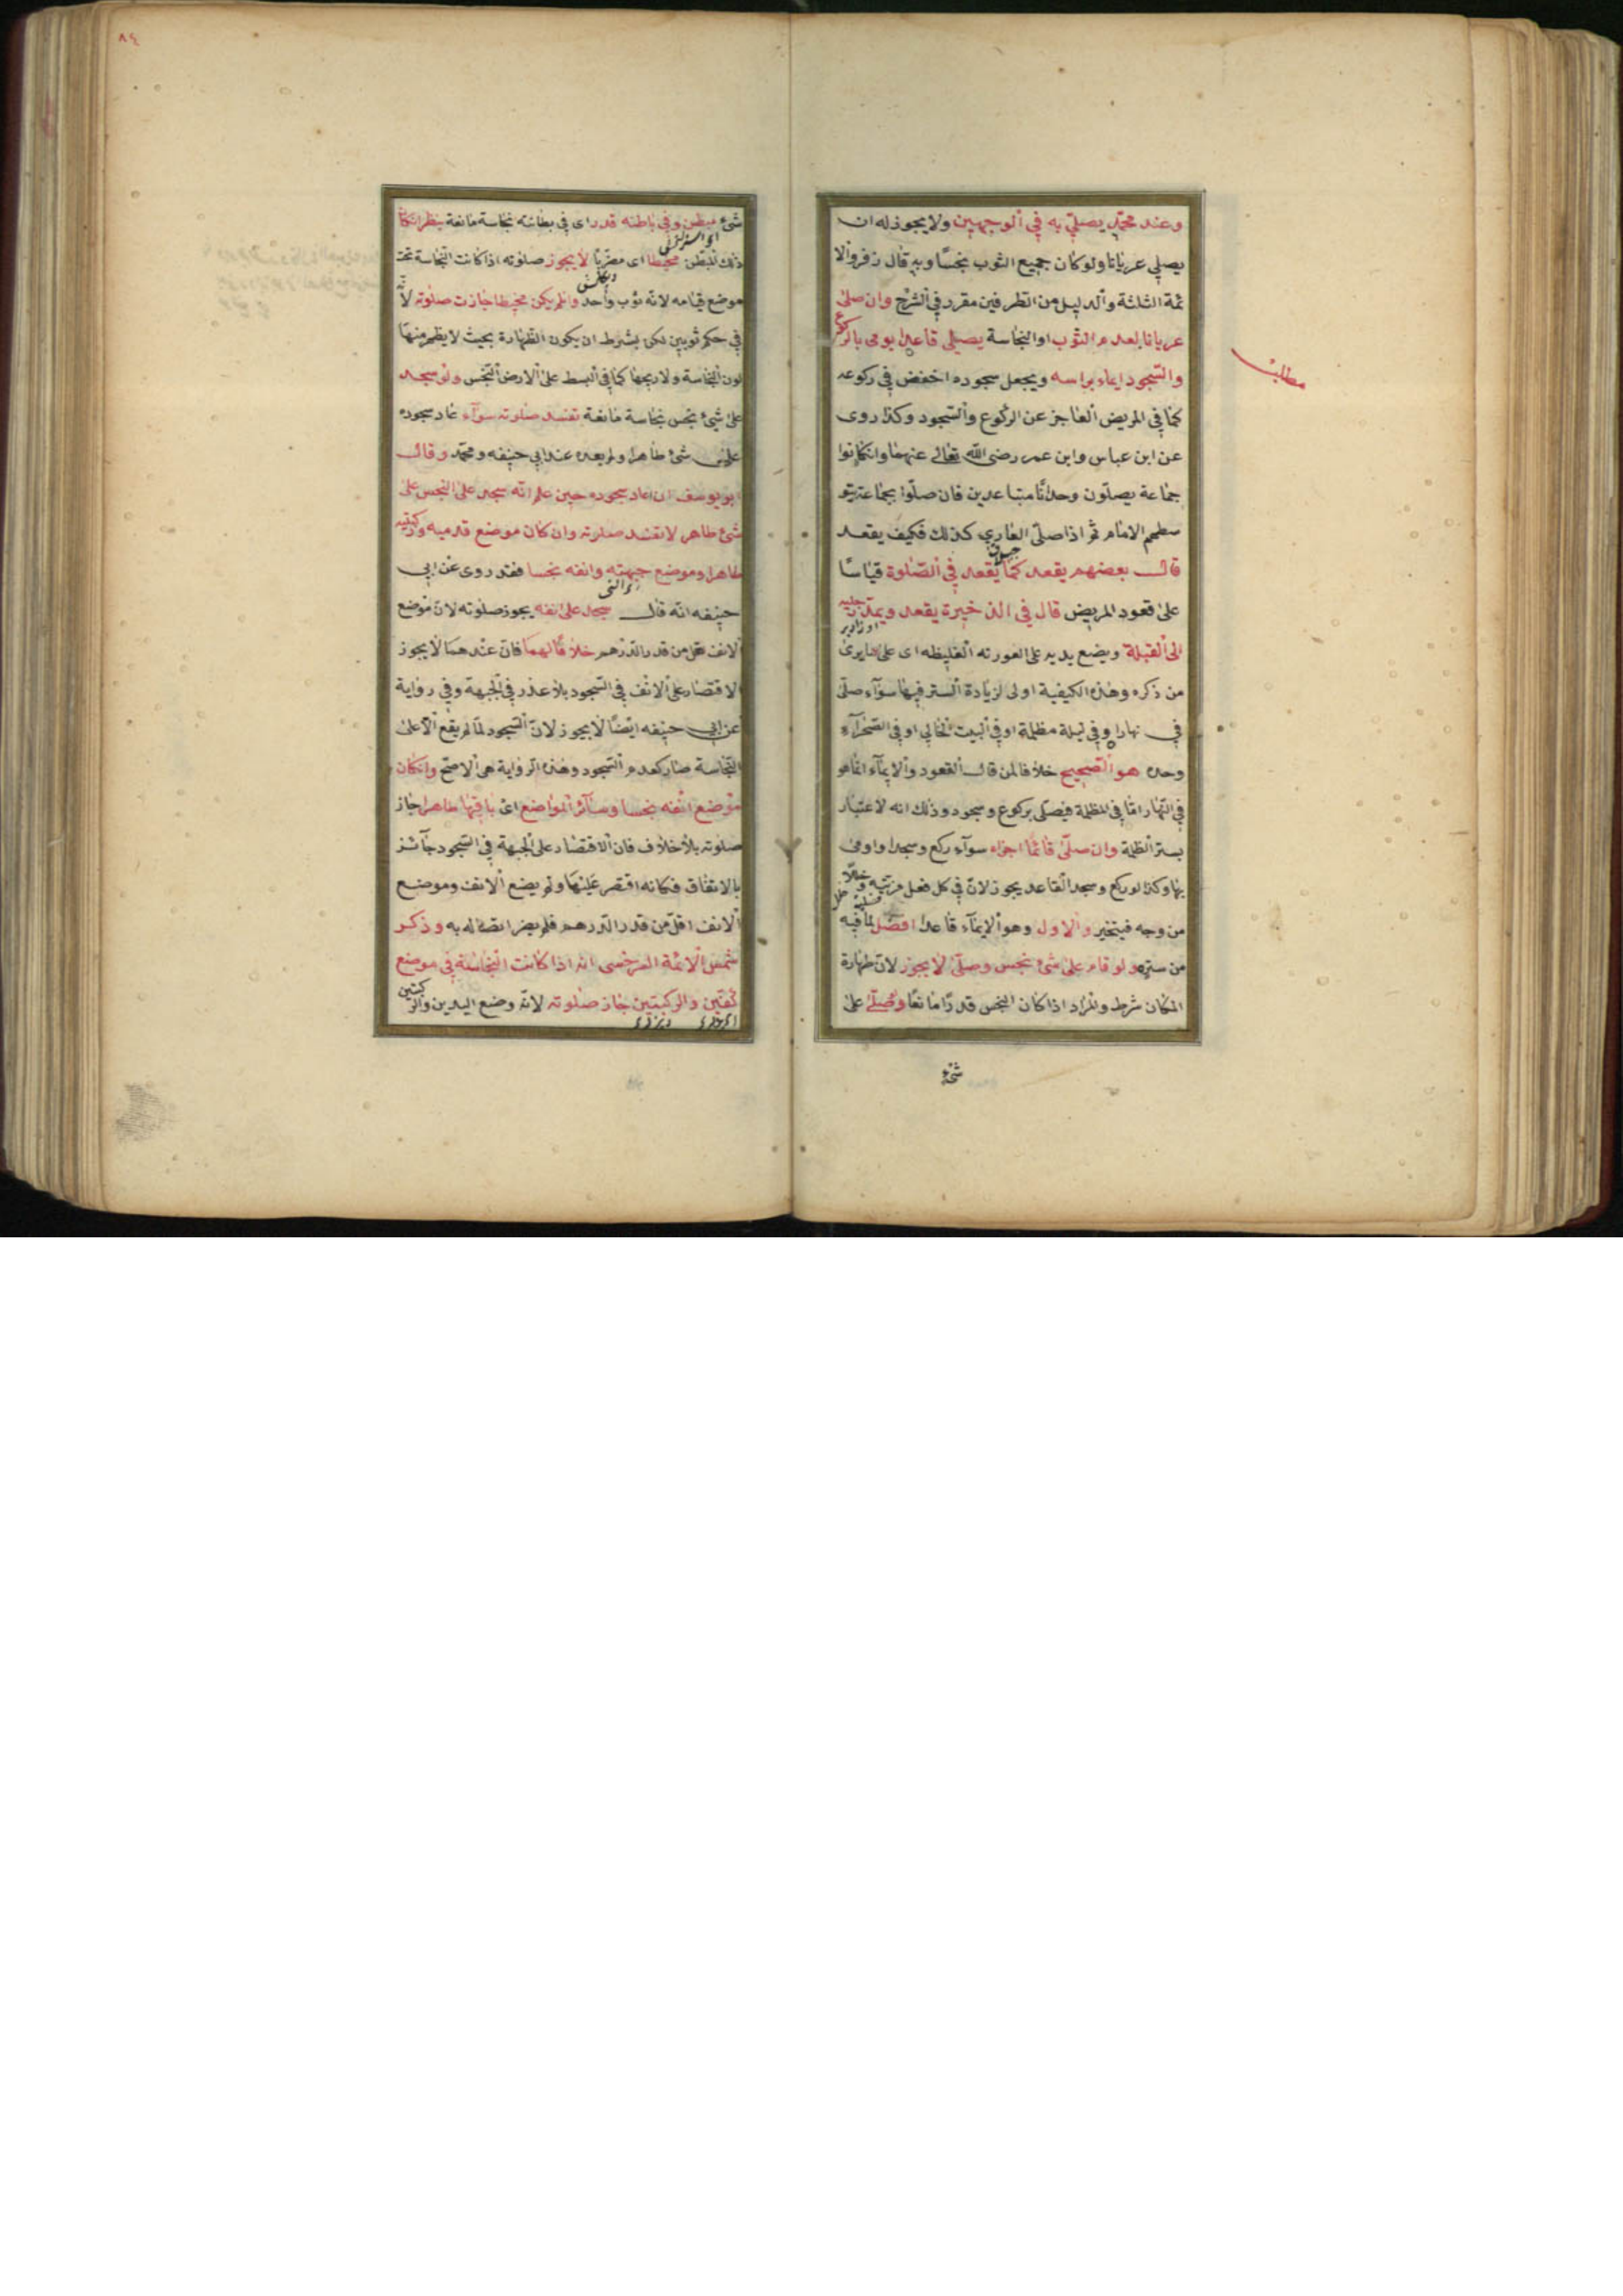 وعند محمّد يصلّي به في الوجهين ولا يجوز له ان
يصلي عريانا ولو كان جميع الثوب نجسًا وبه قال زفر والا
ئمة الثلثة والدليل من الطرفين مقرر في الشرح وان صلىٰ
عريانا بعدم الثوب او النجاسة يصلي قاعدا يومى بالركوع
والسّجود ايماء براسه ويجعل سجوده اخفض في ركوعه
كما في المريض العاجز عن الركوع والسّجود وكذا روى
عن ابن عباس وابن عمر رضى الله تعالى عنهما وان كانوا
جماعة يصلّون وحدانًا متباعدين فان صلّوا بجماعة يتو
سطهم الامام ثم اذا صلّى العاري كذلك فكيف يقعد
قال بعضهم يقعد كما يقعد في الصّلوة قياسًا
علىٰ قعود المريض قال في الذخيرة يقعد ويمدّ رجليه
الى القبلة ويضع يديه على العورته الغليظه اى على ما يرىٰ
من ذكره وهذه الكيفية اولى لزيادة الستر فيها سوآء صلّى
في نهار او في ليلة مظلمة او في البيت الخالي او في الصّحرآء
وحده هو الصّحيح خلافا لمن قال القعود والايمآء انّما هو
في النّهار امّا في المظلمة فيصلّى بركوع وسجود وذلك انه لا عتبار
بستر الظلمة وان صلّىٰ قائمًا اجزاه سوآء ركع وسجد او اومىٰ
بها وكذا لو ركع وسجد القاعد يجوز لانّ في كل فعل مزيّة وخللا
من وجه فيتخير والاول وهو الايمآء قاعدا افضل لما فيه
من ستره ولو قام على شئ نجس وصلّىٰ لا يجوز لانّ طهارة
المكان شرط والمراد اذا كان النجس قدرًا مانعًا ولو صلّىٰ علىٰ
شئ
مطلب
٨٤
شئ مبطن وفي باطنه قدر اى في بطانته نجاسة مانعة ينظر ان كان
ذلك المبطن مخيطا اى مضرّبًا لا يجوز صلوته اذا كانت النجاسة تحت
موضع قيامه لانه ثوب واحد وان لم يكن مخيطا جازت صلوته لانّه
في حكم ثوبين لكن بشرط ان يكون الظهارة بحيث لا يظهر منها
لون النجاسة ولا ريحها كما في البسط على الارض النجس ولو سجد
على شيئ نجس نجاسة مانعة تفسد صلوته سوآء عاد سجوده
على شئ طاهر او لم يعده عند ابي حنيفه ومحمّد وقال
ابو يوسف ان اعاد سجوده حين علم انّه سجد على النجس على
شئ طاهر لا تفسد صلوته وان كان موضع قدميه وركبتيه
طاهرا وموضع جبهته وانفه نجسا فقد روى عن ابي
حنيفه انّه قال سجد على انفه يجوز صلوته لانّ موضع
الانف اقل من قدر الدّرهم خلافًا لهما فانّ عندهما لا يجوز
الاقتصار على الانف في السّجود بلا عذر في الجبهة وفي رواية
عن ابي حنيفه ايضًا لا يجوز لانّ السّجود لمّا لم يقع الّا على
النّجاسة صار كعدم السّجود وهذه الرواية هي الاصحّ وان كان
موضع انفه نجسا وسآئر المواضع اىٰ باقيها طاهرا جاز
صلوته بلا خلاف فان الاقتصار على الجبهة في السّجود جآئز
بالاتفاق فكانه اقتصر عليها ولم يضع الانف وموضع
الانف اقلّ من قدر الدّرهم فلم يضرّ اتصاله به وذكر
شمس الائمّة السرخسى انه اذا كانت النجاسة في موضع
الكفّين والركبتين جاز صلوته لانّه وضع اليدين والركبتين